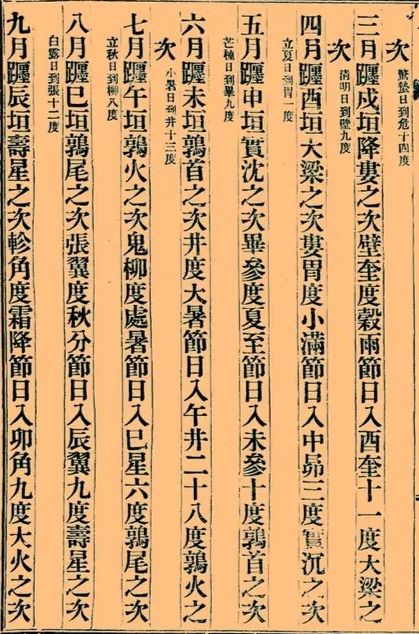 驚蟄日到危十四度
三月躔戍垣降婁之次壁奎度穀雨節日入酉奎十一度大梁之
次 清明日到壁九度
四月躔酉垣大梁之次婁胃度小滿節日入中昴三度實沉之次
立夏日到胃一度
五月躔申垣實沈之次畢參度夏至節日入未參十度鶉首之次
芒種日到畢九度
六月躔未垣鶉首之次井度大暑節日入午井二十八度鶉火之
次 小暑日到井十三度
七月躔午垣鶉火之次鬼柳度處暑節日入巳星六度鶉尾之次
立秋日到柳八度
八月躔巳垣鶉尾之次張翼度秋分節日入辰翼九度壽星之次
白露日到張十二度
九月躔辰垣壽星之次軫角度霜降節日入卯角九度大火之次